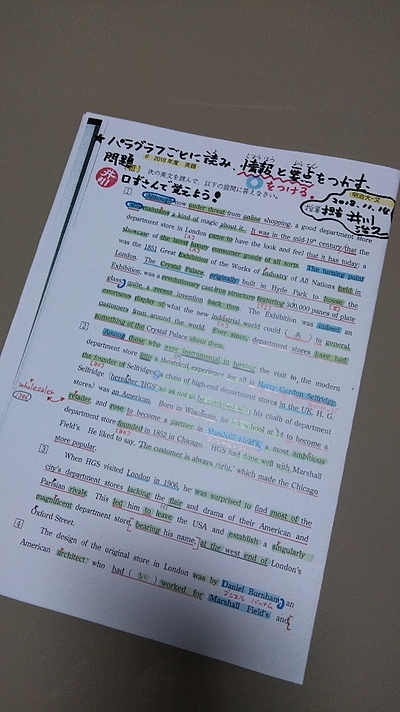 ★パラグラフごとに読み、情報と要点をつかむ
をつける
問題 2018年度 英語
明治大-文
2018.
井川治久
口ずさんで覚えよう！
次の英文を読んで、以下の設問に答えなさい。
1 Although now under threat from online shopping, a good department store
maintaining a kind of magic about it. It was in the mid-19th century that the
department store in London came to have the look and feel that it has today: a
showcase of the latest luxury consumer goods of all sorts. The turning point
was the 1851 Great Exhibition of the Works of Industry of All Nations held in
London. The Crystal Palace, originally built in Hyde Park to house the
Exhibition, was a revolutionary cast-iron structure featuring 300,000 panes of plate
glass, quite a recent invention back then. The Exhibition was indeed an
enormous display of what the new industrial world could ( あ ) to general
customers from around the world. Ever since, department stores have had
something of the Crystal Palace about them.
2 Among those who were instrumental in turning the visit to the modern
department store into a theatrical experience for all is Harry Gordon Selfridge,
the founder of Selfridges, a chain of high-end department stores in the UK. H. G.
Selfridge (hereafter HGS, so as not to be confused with his chain of department
stores) was an American. Born in Wisconsin, he left school at 14 to become a
wholesaler
retailer, and rose to become a partner in Marshall Field's, a most ambitious
department store founded in 1852 in Chicago. HGS had done well with Marshall
Field's. He liked to say, 'The customer is always right,' which made the Chicago
store popular.
3 When HGS visited London in 1906, he was surprised to find most of the
city's department stores lacking the flair and drama of their American and
Parisian rivals. This led him to leave the USA and establish a singularly
magnificent department store bearing his name at the west end of London's
Oxford Street.
4 The design of the original store in London was by Daniel Burnham, an
ダニエル バーナム
American architect who had ( い ) worked for Marshall Field's and